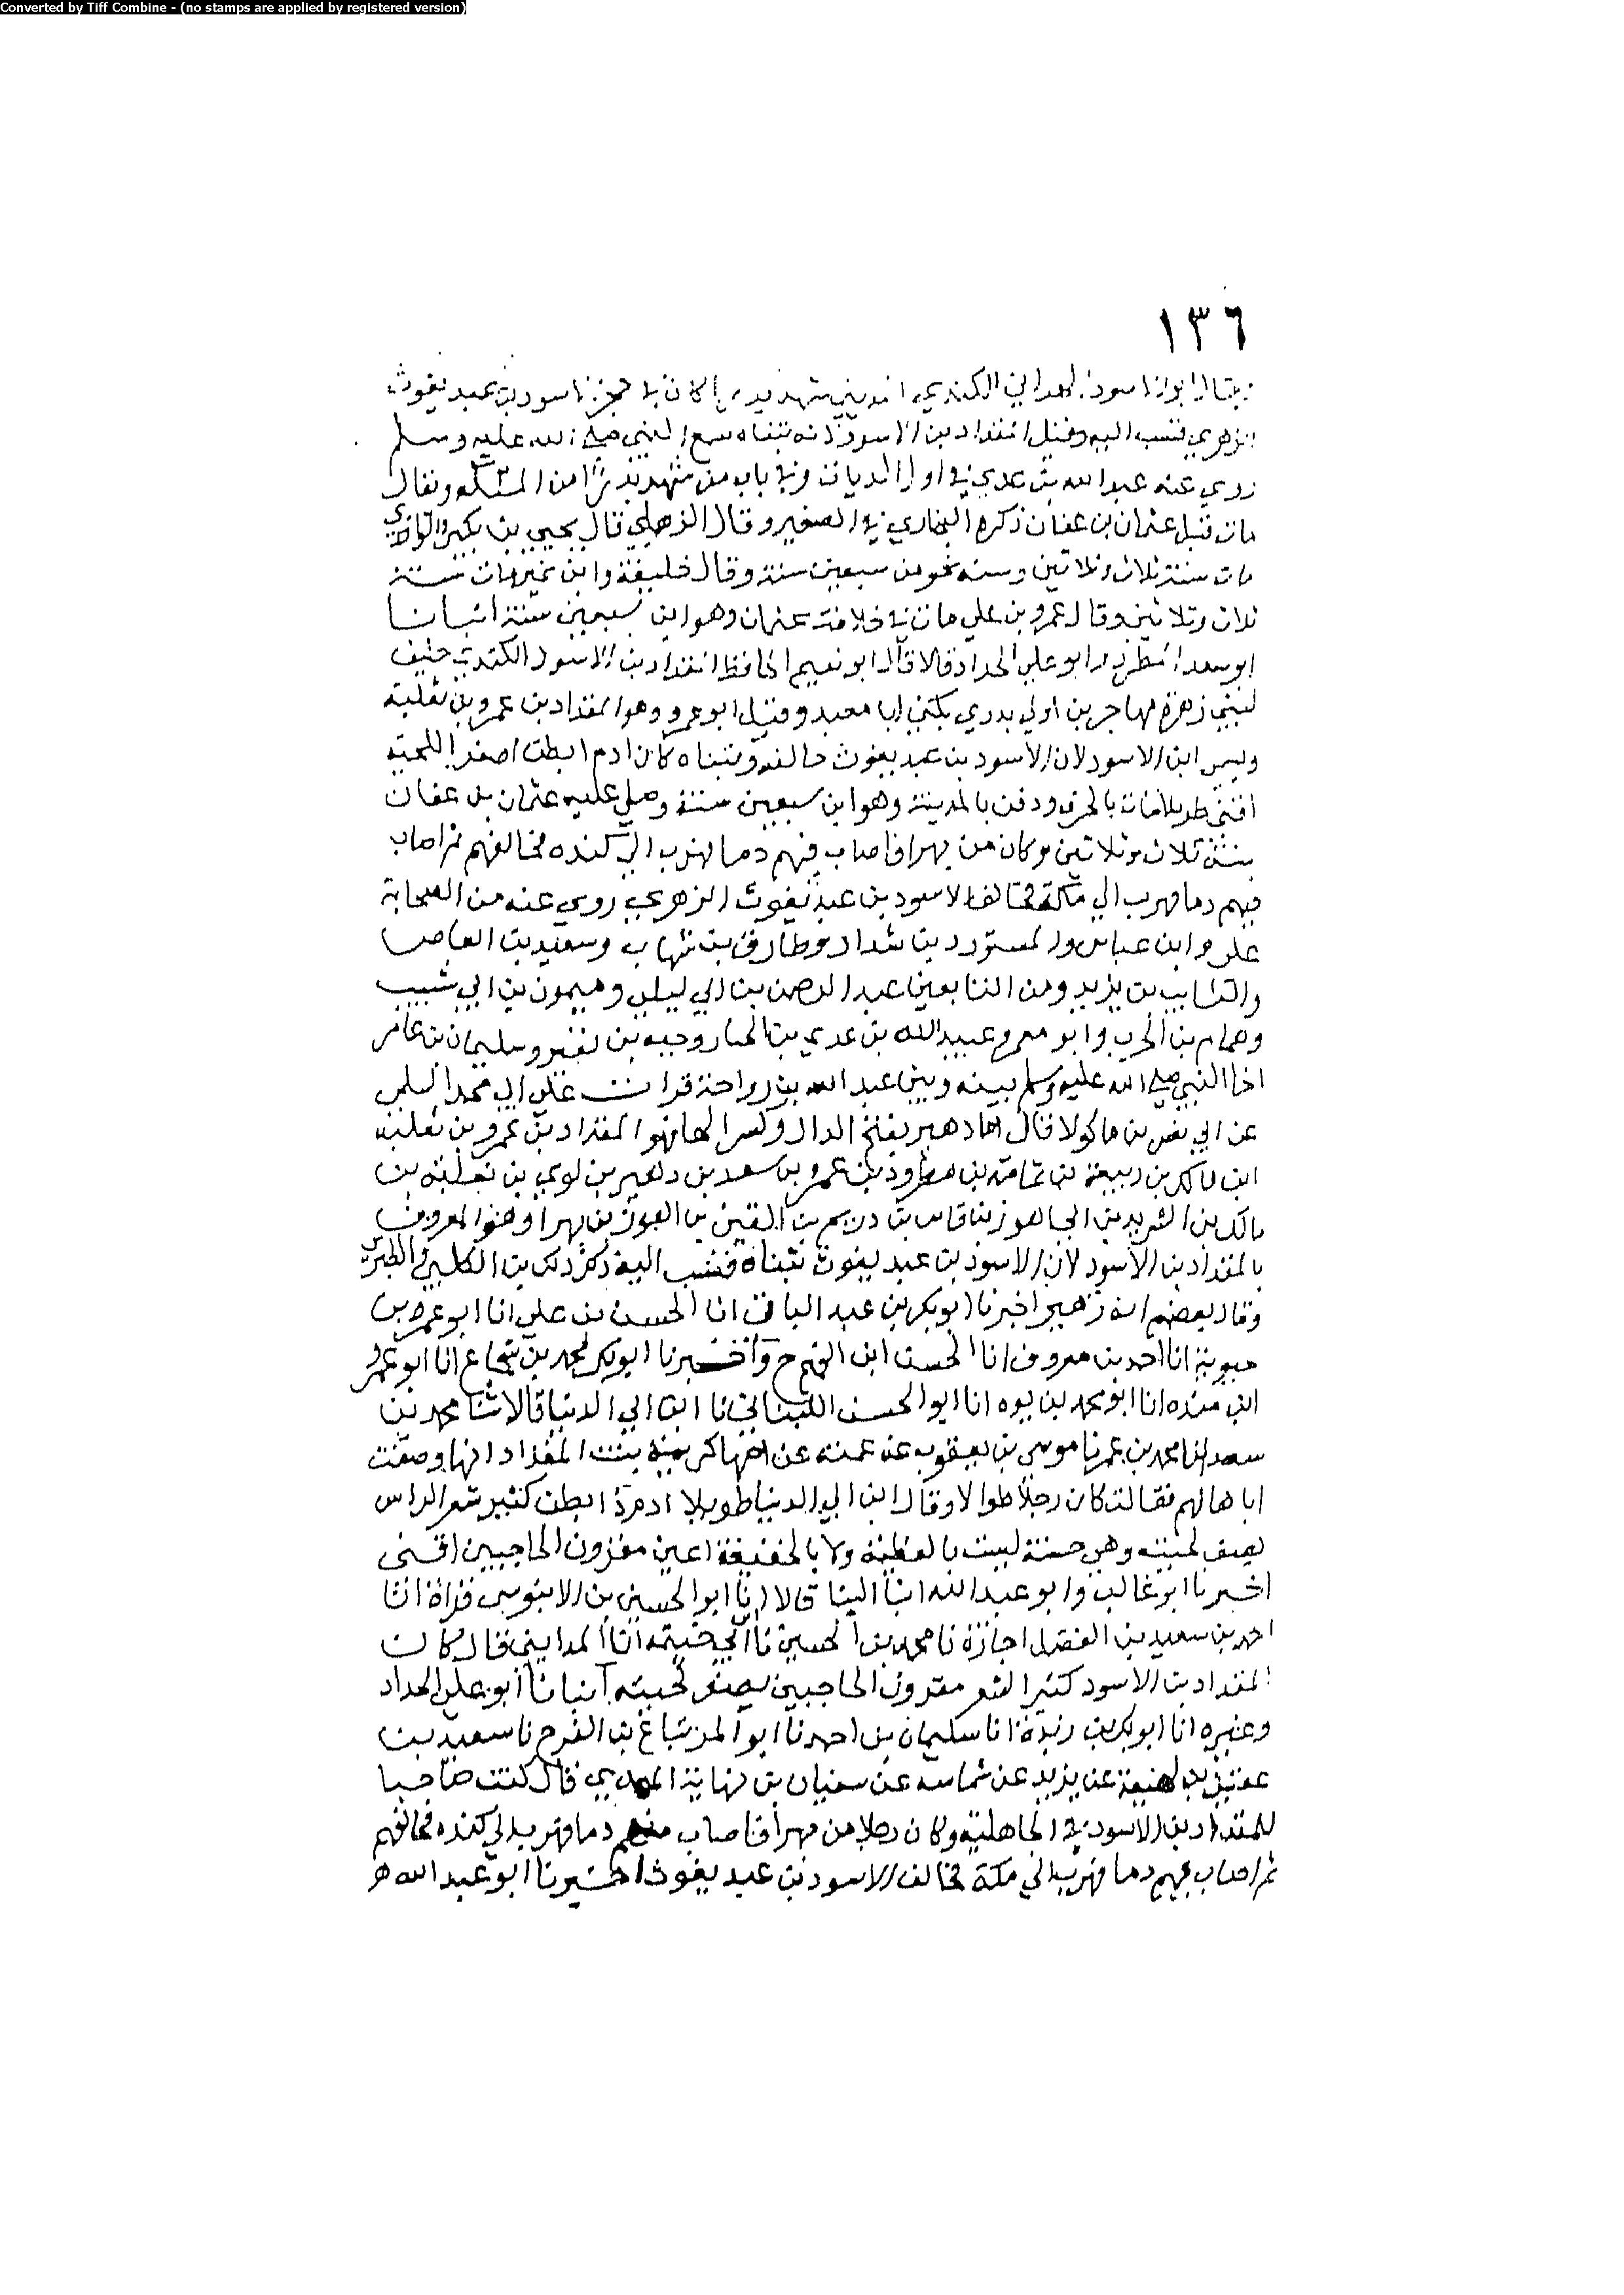 Converted by Tiff Combine - (no stamps are applied by registered version)
١٣٦
يقال ابو الاسود الكندي المديني شهد بدرا كان في حجر الاسود بن عبد يغوث
الزهري فنسب اليه وقيل المقداد بن الاسود لانه تبناه سمع النبي صلى الله عليه وسلم
روي عنه عبد الله بن عدي في اول الديات وفي باب من شهد بدرا ويقال
مات قبل عثمان بن عفان ذكره البخاري في الصغير وقال الذهلي قال يحيي بن بكير والواقدي
مات سنة ثلاث وثلاثين وسنه نحو من سبعين سنة وقال خليفة وابن نمير مات سنة
ثلاث وثلاثين وقال عمرو بن علي مات في خلافة عثمان وهو ابن سبعين سنة انبانا
ابو سعد المطرز وابو علي الحداد قالا قال ابو نعيم الحافظ المقداد بن الاسود الكندي حليف
لبني زهرة مهاجر بن اولي بدري يكني ابا معبد وقيل ابو عمرو وهو المقداد بن عمرو بن ثعلبة
وليس ابن الاسود لان الاسود بن عبد يغوث حالفه وتبناه كان ادم ابطن اصفر اللحية
اقني طويلا مات بالجرف ودفن بالمدينة وهو ابن سبعين سنة وصلي عليه عثمان بن عفان
سنة ثلاث وثلاثين وكان من بهرا فاصاب فيهم دما فهرب الي كنده فحالفهم ثم اصاب
فيهم دما فهرب الي مكة فحالف الاسود بن عبد يغوث الزهري روي عنه من الصحابة
علي وابن عباس والمستورد بن شداد وطارق بن شهاب وسعيد بن العاص
والسايب بن يزيد ومن التابعين عبد الرحمن بن ابي ليلي وميمون بن ابي شبيب
وهمام بن الحرب وابو معمر وعبيد الله بن عدي بن الخيار وجبير بن نفير وسليمان بن عامر
اخا النبي صلى الله عليه وسلم بينه وبين عبد الله بن رواحة قرات علي ابي محمد السلمي
عن ابي نصر بن ماكولا قال اما دهير بفتح الدال وكسر الها فهو المقداد بن عمرو بن ثعلبة
ابن مالك بن ربيعة بن ثمامة بن مطرود بن عمرو بن سعد بن دهير بن لوي بن ثعلبة بن
مالك بن الشريد بن ابي اهوز بن قاس بن دريم بن القين بن اهود بن بهرا وهو المعروف
بالمقداد بن الاسود لان الاسود بن عبد يغوث تبناه فنسب اليه ذكر ذلك بن الكلبي والطبري
وقال بعضهم ابن زهير اخبرنا ابو بكر بن عبد الباقي انا الحسن بن علي انا ابو عمر بن
حيوية انا احمد بن معروف انا الحسين ابن الفهم ح واخبرنا ابو بكر محمد بن شجاع انا ابو عمرو
ابن منده انا ابو محمد بن يوه انا ابو الحسن اللنباني نا ابن ابي الدنيا قالا ثنا محمد بن
سعد انا محمد بن عمر نا موسي بن يعقوب عن عمته عن امها كريمة بنت المقداد انها وصفت
اباها لهم فقالت كان رجلا طوالا وقال ابن ابي الدنيا طويلا ادم ذا بطن كثير شعر الراس
يصفر لحيته وهي حسنة ليست بالعظيمة ولا بالخفيفة اعين مقرون الحاجبين اقني
اخبرنا ابو غالب وابو عبد الله ابنا البنا قالا انا ابو الحسين بن الابنوسي قراة انا
احمد بن سعيد بن الفضل اجازة نا محمد بن الحسين نا ابن ابي خيثمة انا المدايني قال كان
المقداد بن الاسود كثير الشعر مقرون الحاجبين يصفر لحيته انبانا ابو علي الحداد
وغيره انا ابو بكر بن ريذة انا سليمان بن احمد نا ابو الزنباع بن الفرج نا سعيد بن
عفير بن لهيعة عن يزيد عن شماسة عن سفيان بن صهابة المهري قال كنت صاحبا
للمقداد بن الاسود في الجاهلية وكان رجلا من بهرا فاصاب منهم دما فهرب الي كنده فحالفهم
ثم اصاب فيهم دما فهرب الي مكة فحالف الاسود بن عبد يغوث اخبرنا ابو عبد الله